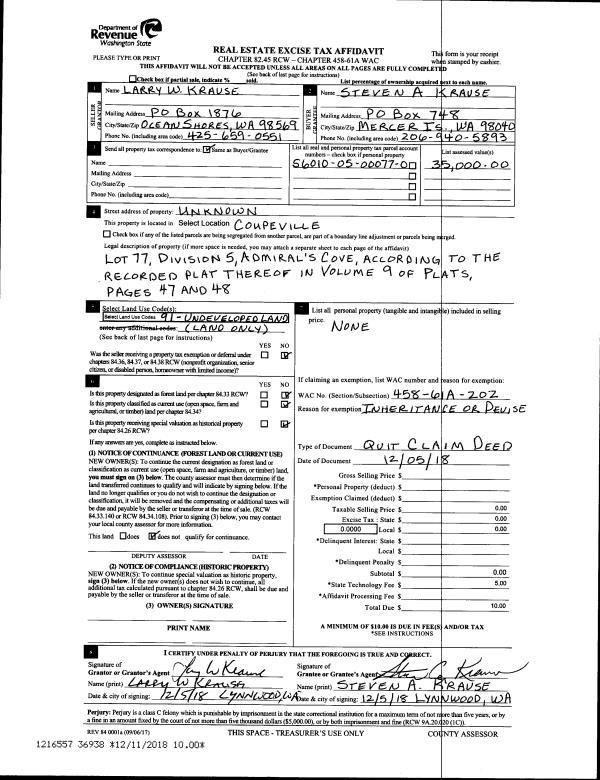 Department of
Revenue
Washington State
REAL ESTATE EXCISE TAX AFFIDAVIT
This form is your receipt
PLEASE TYPE OR PRINT
CHAPTER 82.45 RCW – CHAPTER 458-61A WAC
when stamped by cashier.
THIS AFFIDAVIT WILL NOT BE ACCEPTED UNLESS ALL AREAS ON ALL PAGES ARE FULLY COMPLETED
(See back of last page for instructions)
Check box if partial sale, indicate % sold. List percentage of ownership acquired next to each name.
1 Name LARRY W. KRAUSE
SELLER GRANTOR
Mailing Address PO BOX 1876
City/State/Zip OCEAN SHORES, WA 98569
Phone No. (including area code) 425-659-0551
2 Name STEVEN A KRAUSE
BUYER GRANTEE
Mailing Address PO BOX 748
City/State/Zip MERCER IS., WA 98040
Phone No. (including area code) 206-940-5893
3 Send all property tax correspondence to: Same as Buyer/Grantee
Name
Mailing Address
City/State/Zip
Phone No. (including area code)
List all real and personal property tax parcel account
numbers – check box if personal property
S6010-05-00077-0
List assessed value(s)
35,000.00
4 Street address of property: UNKNOWN
This property is located in Select Location COUPEVILLE
Check box if any of the listed parcels are being segregated from another parcel, are part of a boundary line adjustment or parcels being merged.
Legal description of property (if more space is needed, you may attach a separate sheet to each page of the affidavit)
LOT 77, DIVISION 5, ADMIRAL'S COVE, ACCORDING TO THE
RECORDED PLAT THEREOF IN VOLUME 9 OF PLATS,
PAGES 47 AND 48
5 Select Land Use Code(s):
Select Land Use Codes 91 - UNDEVELOPED LAND
enter any additional codes: (LAND ONLY)
(See back of last page for instructions)
YES NO
Was the seller receiving a property tax exemption or deferral under
chapters 84.36, 84.37, or 84.38 RCW (nonprofit organization, senior
citizen, or disabled person, homeowner with limited income)?
6 YES NO
Is this property designated as forest land per chapter 84.33 RCW?
Is this property classified as current use (open space, farm and
agricultural, or timber) land per chapter 84.34?
Is this property receiving special valuation as historical property
per chapter 84.26 RCW?
If any answers are yes, complete as instructed below.
(1) NOTICE OF CONTINUANCE (FOREST LAND OR CURRENT USE)
NEW OWNER(S): To continue the current designation as forest land or
classification as current use (open space, farm and agriculture, or timber) land,
you must sign on (3) below. The county assessor must then determine if the
land transferred continues to qualify and will indicate by signing below. If the
land no longer qualifies or you do not wish to continue the designation or
classification, it will be removed and the compensating or additional taxes will
be due and payable by the seller or transferor at the time of sale. (RCW
84.33.140 or RCW 84.34.108). Prior to signing (3) below, you may contact
your local county assessor for more information.
This land does does not qualify for continuance.
DEPUTY ASSESSOR DATE
(2) NOTICE OF COMPLIANCE (HISTORIC PROPERTY)
NEW OWNER(S): To continue special valuation as historic property,
sign (3) below. If the new owner(s) does not wish to continue, all
additional tax calculated pursuant to chapter 84.26 RCW, shall be due and
payable by the seller or transferor at the time of sale.
(3) OWNER(S) SIGNATURE
PRINT NAME
7 List all personal property (tangible and intangible) included in selling
price.
NONE
If claiming an exemption, list WAC number and reason for exemption:
WAC No. (Section/Subsection) 458-61A-202
Reason for exemption INHERITANCE OR DEVISE
Type of Document QUIT CLAIM DEED
Date of Document 12/05/18
Gross Selling Price $
*Personal Property (deduct) $
Exemption Claimed (deduct) $
Taxable Selling Price $ 0.00
Excise Tax : State $ 0.00
0.0000 Local $ 0.00
*Delinquent Interest: State $
Local $
*Delinquent Penalty $
Subtotal $ 0.00
*State Technology Fee $ 5.00
*Affidavit Processing Fee $
Total Due $ 10.00
A MINIMUM OF $10.00 IS DUE IN FEE(S) AND/OR TAX
*SEE INSTRUCTIONS
8 I CERTIFY UNDER PENALTY OF PERJURY THAT THE FOREGOING IS TRUE AND CORRECT.
Signature of
Grantor or Grantor's Agent
Name (print) LARRY W KRAUSE
Date & city of signing: 12/5/18 LYNNWOOD, WA
Signature of
Grantee or Grantee's Agent
Name (print) STEVEN A. KRAUSE
Date & city of signing: 12/5/18 LYNNWOOD, WA
Perjury: Perjury is a class C felony which is punishable by imprisonment in the state correctional institution for a maximum term of not more than five years, or by
a fine in an amount fixed by the court of not more than five thousand dollars ($5,000.00), or by both imprisonment and fine (RCW 9A.20.020 (1C)).
REV 84 0001a (09/06/17) THIS SPACE - TREASURER'S USE ONLY COUNTY ASSESSOR
1216557 36938 *12/11/2018 10.00*